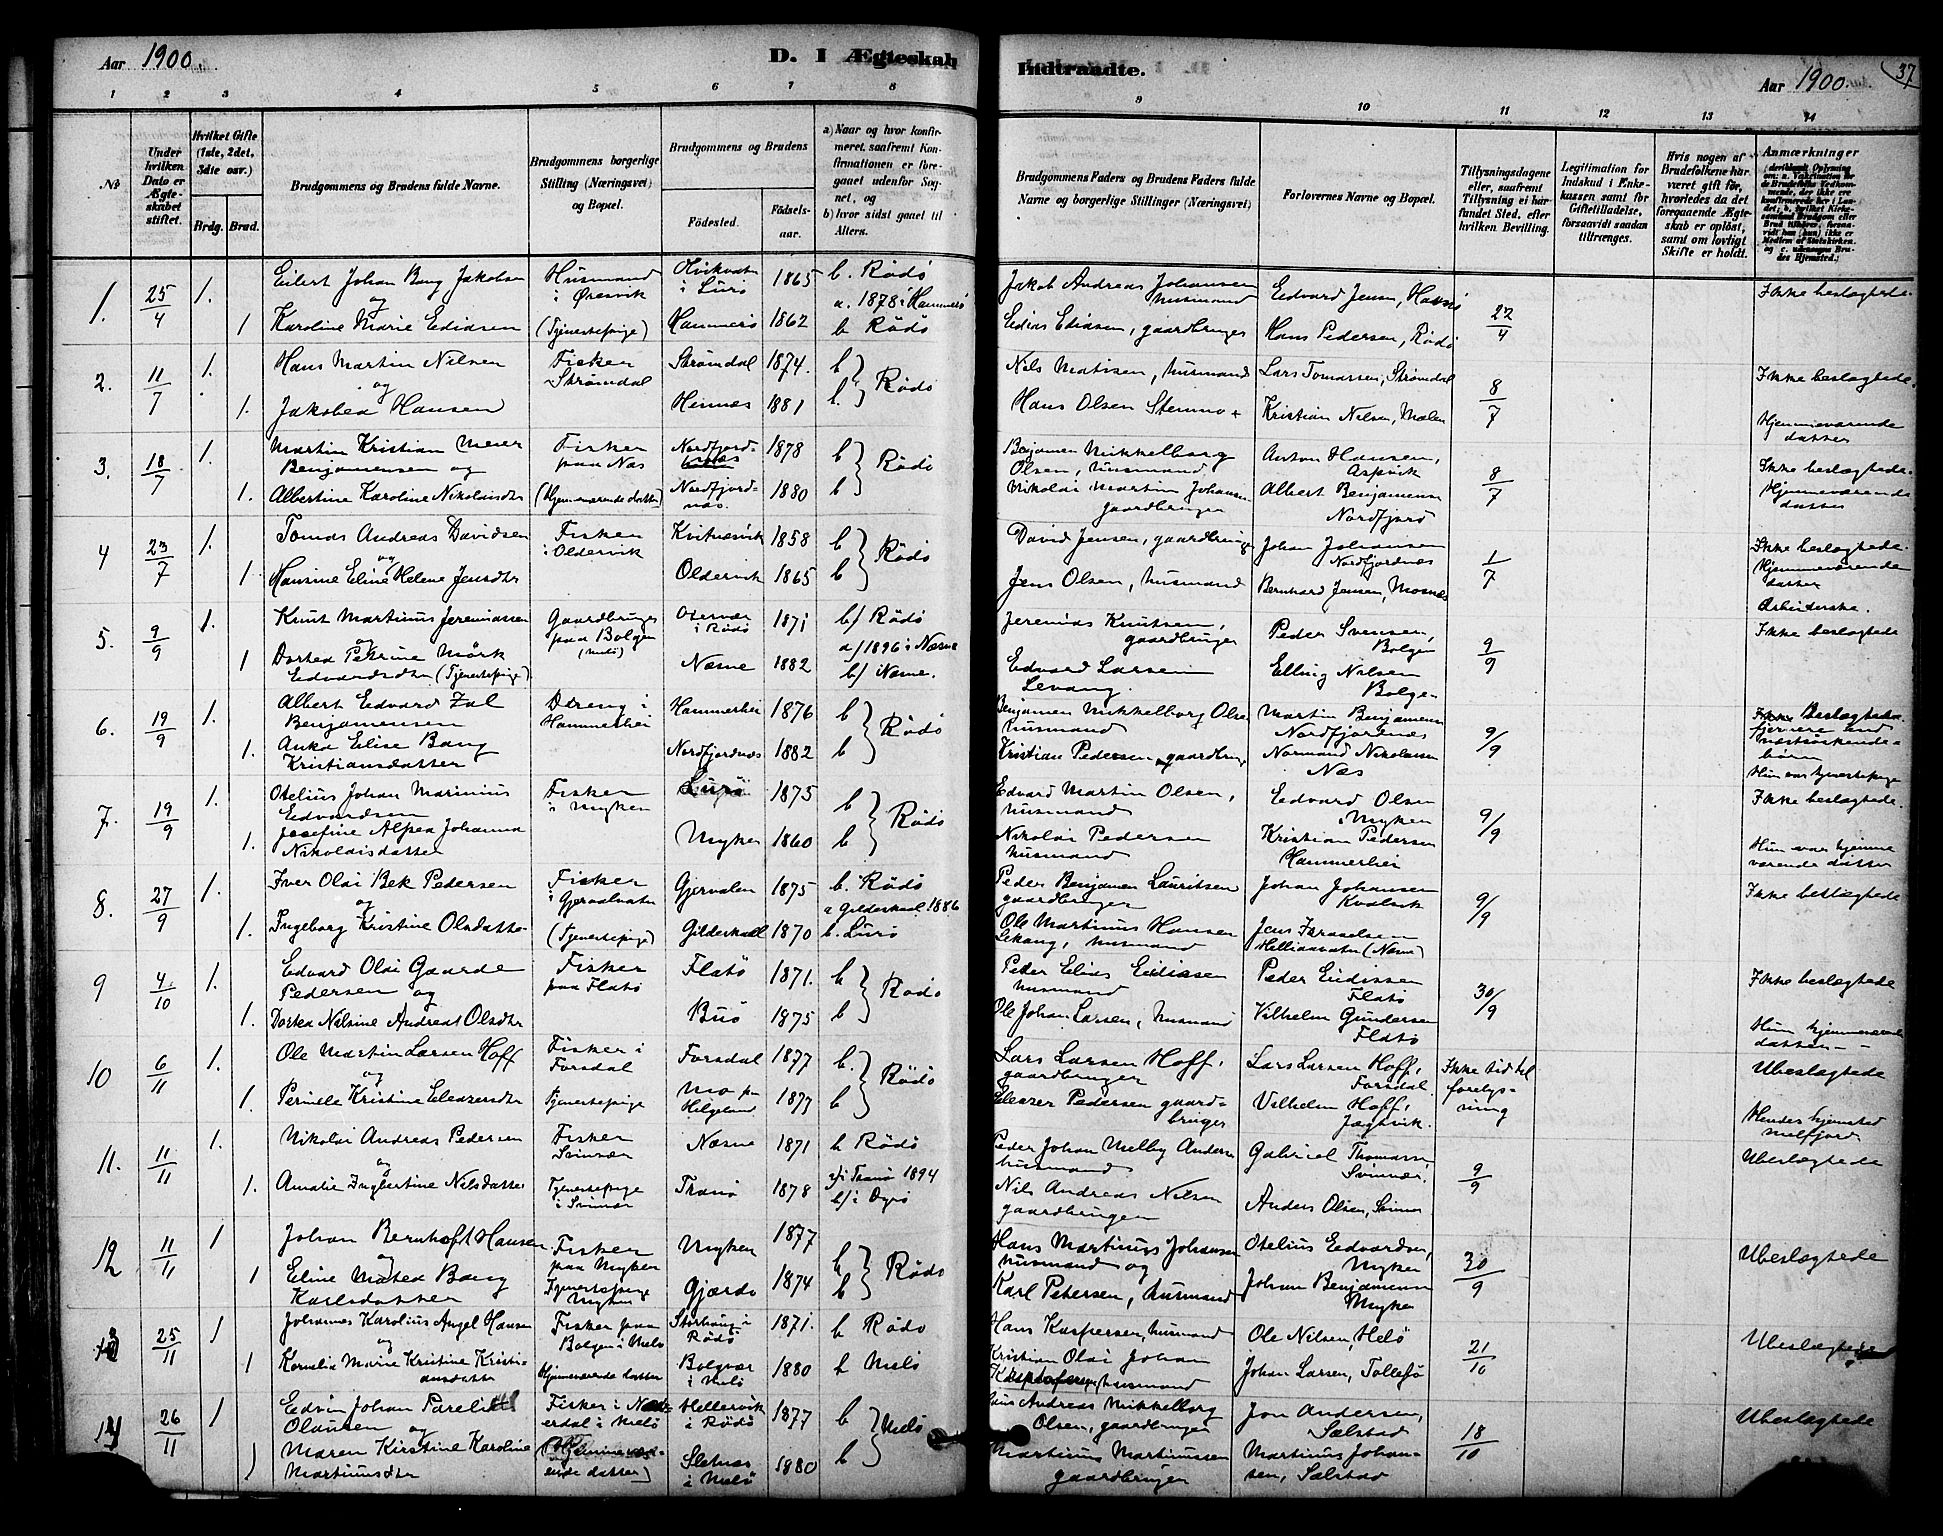 Aar 1900.
D. I Ægteskab
Indtraadte.
Aar 1900.
37
1 2 3 4 5 6 7 8
9 10 11 12 13 14
No
Under hvilken Dato er Ægteskabet stiftet.
Hvilket Gifte (1ste, 2det, 3die osv.)
Brdg. Brud.
Brudgommens og Brudens fulde Navne.
Brudgommens borgerlige Stilling (Næringsvei) og Bopæl.
Brudgommens og Brudens
Födested.
Födselsaar.
a) Naar og hvor konfirmeret, saafremt Konfirmationen er foregaaet udenfor Sognet, og
b) hvor sidst gaaet til Alters.
Brudgommens Faders og Brudens Faders fulde Navne og borgerlige Stillinger (Næringsvei)
Forlovernes Navne og Bopæl.
Tillysningsdagene eller, saafremt Tillysning ei har fundet Sted, efter hvilken Bevilling.
Legitimation for Indskud i Enkekassen samt for Giftetilladelse, forsaavidt saadan tiltrænges.
Hvis nogen af Brudefolkene har været gift för, hvorledes da det foregaaende Ægteskab er oplöst, samt om lovligt Skifte er holdt.
Anmærkninger
1. 25/4 1. Eilert Johan Bang Jakobsen Husmand i Øresvik i Lurö 1865 b. Rödö Jakob Andreas Johansen husmand Edvard Jensen, 22/4 Ikke beslægtede.
og a. 1878 i Hammerö
1 Karoline Marie Ediassen (Tjenestepige) Hammerö 1862 b Rödö Edias Ediassen, gaardbruger Hans Pedersen, Rödö
2. 11/7 1. Hans Martin Nilsen Fisker Strömdal Strömdal 1874. b Rödö Nils Matisen, husmand Lars Tomassen, Strömdal 8/7 Ikke beslægtede.
og
1. Jakobea Hansen 1881 b. Hans Olsen Stenmo + Kristian Nilsen, Mælen Hjemmeværende datter
3. 18/7 1. Martin Kristian Meier Benjaminsen og Fisker paa Næs Nordfjordnæs 1878 b Rödö Benjamen Mikkelborg Olsen, husmand Anton Hansen, Aspvik 8/7 Ikke beslægtede.
1. Albertine Karoline Nikolaisdtr (Hjemmeværende datter) Nordfjordnæs. 1880 b Nikolai Martin Johansen gaardbruger Albert Benjamensen Nordfjord Hjemmeværende datter
4 23/7 1. Tomas Andreas Davidsen Fisker i Oldervik Kvitnæsvik 1858 b Rödö David Jensen, gaardbruger Johan Johansen Nordfjordnæs 1/7 Ikke beslægtede.
og
1. Haurine Eline Helene Jensdtr Oldervik 1865 b Jens Olsen, husmand Bernhard Jensen, Mosnæs Hjemmeværende datter
5. 9/9 1. Knut Martinus Jeremiassen Gaardbruger paa Bolgen (Melö) Otervær i Rödö 1871 b/ Rödö Jeremias Knutsen, gaardbruger Peder Svensen, Bolgen 9/9 Arbeiderske. Ikke beslægtede
og a/ 1896 i Næsne
1 Dortea Petrine Mörk Edvardsdtr (Tjenestepige) Næsne 1882 b/ Næsne. Edvard Larsen Levang. Elling Nilsen Bolgen
6. 19/9 1. Albert Edvard Zal Benjamensen Dreng i Hammerhei Hammerhei 1876 b Rödö Benjamen Mikkelborg Olsen husmand Martin Benjamensen Nordfjordnæs 9/9 Ikke Beslægtede. fjernere end næstsöskendebörn
1. Anka Elise Bang Kristiansdatter Nordfjordnæs 1882 b Kristian Pedersen gaardbruger Normand Nikolaisen Næs Hun var tjenestepige
7. 19/9 1. Otelius Johan Marinius Edvardsen Fisker i Myken Lurö 1875 b Rödö Edvard Martin Olsen, husmand Edvard Olsen Myken 9/9 Ikke beslægtede.
1. Josefine Alfea Johanna Nikolaisdatter Myken 1860 b Nikolai Pedersen husmand Kristian Pedersen Hammerhei Hun var hjemmeværende datter
8. 27/9 1. Iver Olai Bek Pedersen Fisker i Gjervalvatn Gjervalen 1875 b. Rödö Peder Benjamen Lauritsen gaardbruger Johan Johansen Kvalvik 9/9 Ikke beslægtede
og a Gildeskaal 1886
1. Ingeborg Kristine Olsdatter (Tjenestepige) Gildeskaal 1870 b. Lurö Ole Martinus Hansen husmand Jens Israelsen (Næsne)
9 4./10 1. Edvard Olai Gaarde Pedersen og Fisker paa Flatö Flatö 1871. b Rödö Peder Elias Ediassen husmand Peder Ediassen Flatö 30/9 Ikke beslægtede
1. Dortea Nilsine Andrea Olsdtr Buö 1875 b Ole Johan Larsen, husmand Vilhelm Gundersen Flatö Hun hjemmeværende datter
10 6/11 1. Ole Martin Larsen Hoff Fisker i Forsdal Forsdal 1877 b. Rödö Lars Larsen Hoff, gaardbruger Lars Larsen Hoff, Forsdal Ikke tid til forelysning Ubeslægtede
og
1. Pernille Kristine Eleazersdtr Tjenestepige Mo paa Helgeland 1873 b Eleazer Pedersen gaardbruger Vilhelm Hoff, Jægtvik. Hendes hjemsted Melfjord
11. 11/11 1. Nikolai Andreas Pedersen Fisker Svinvær Næsne 1871 b Rödö Peder Johan Melby Andersen husmand Gabriel Thomassen Svinvær 9/9 Ubeslægtede
og
1. Amalie Ingbertine Nilsdatter Tjenestepige i Svinvær Tranö 1878 a/ i Tranö 1894 b/ i Nils Andreas Nilsen gaardbruger Anders Olsen, Svinvær
12 11/11 1 Johan Bernhoft Hansen Fisker paa Myken Myken 1877 b Rödö Hans Martinius Johansen husmand og Otelius Edvardsen, Myken 30/9 Ubeslægtede
og
1 Eline Matea Bang Karlsdatter Tjenestepige Myken Gjærdö 1874 b Karl Petersen, husmand Johan Benjamensen Myken
13 25/11 1 Johannes Karolius Angel Hansen Fisker paa Bolgen i Melö i Rödö 1871. b Rödö Hans Kaspersen, husmand Ole Nilsen, Melö 21/10 Ubeslægtede
og
1 Kornelia Marie Kristine Kristiansdatter Hjemmeværende datter Bolgvær i Melö 1880 b Melö Kristian Olai Johan Kristofersen, husmand Johan Larsen, Tollefsö
14 26/11 1 Edvin Johan Parelius Olausen og Fisker i i Melö Hellervik i Rödö 1877 b Melö Olaus Andreas Mikkelborg Olsen, gaardbruger Jon Andersen, Sælstad 18/10 Ubeslægtede
1 Maren Kirstine Karoline Martinusdtr (Hjemmeværende datter) Sletnæs i Melö 1880 b Martinus Martinussen gaardbruger Martinus Johansen, Sælstad